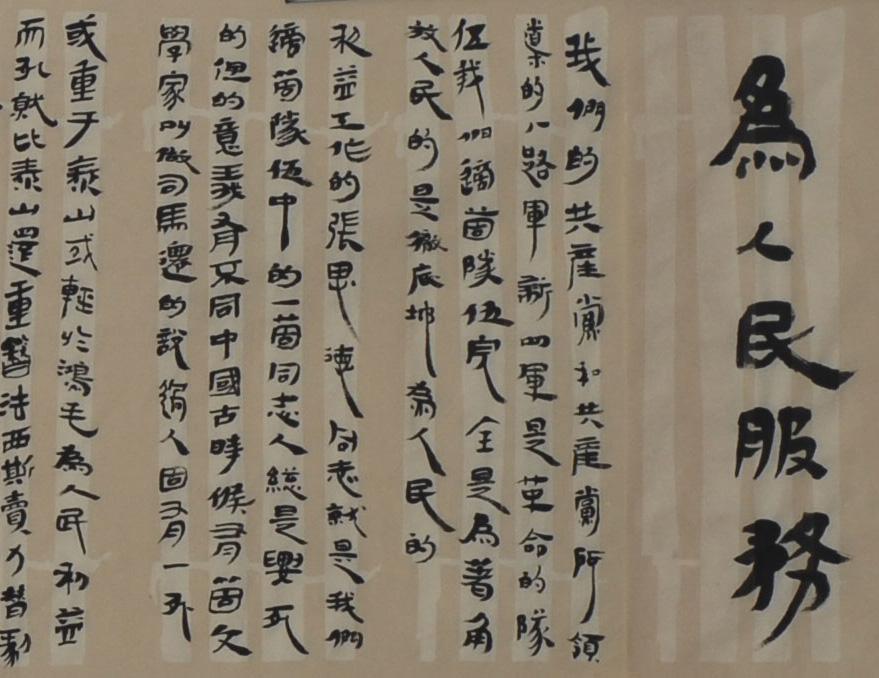 為人民服務
我們的共產黨和共產黨所領
導的八路軍新四軍是革命的隊
伍我們這箇隊伍完全是為著角
放人民的是徹底地為人民的
利益工作的張思德同志就是我們
這箇隊伍中的一箇同志人總是要死
的但的意義有不同中國古時候有箇文
學家叫做司馬遷的說過人固有一死
或重于泰山或輕於鴻毛為人民利益
而死就比泰山還重替法西斯賣力替剝